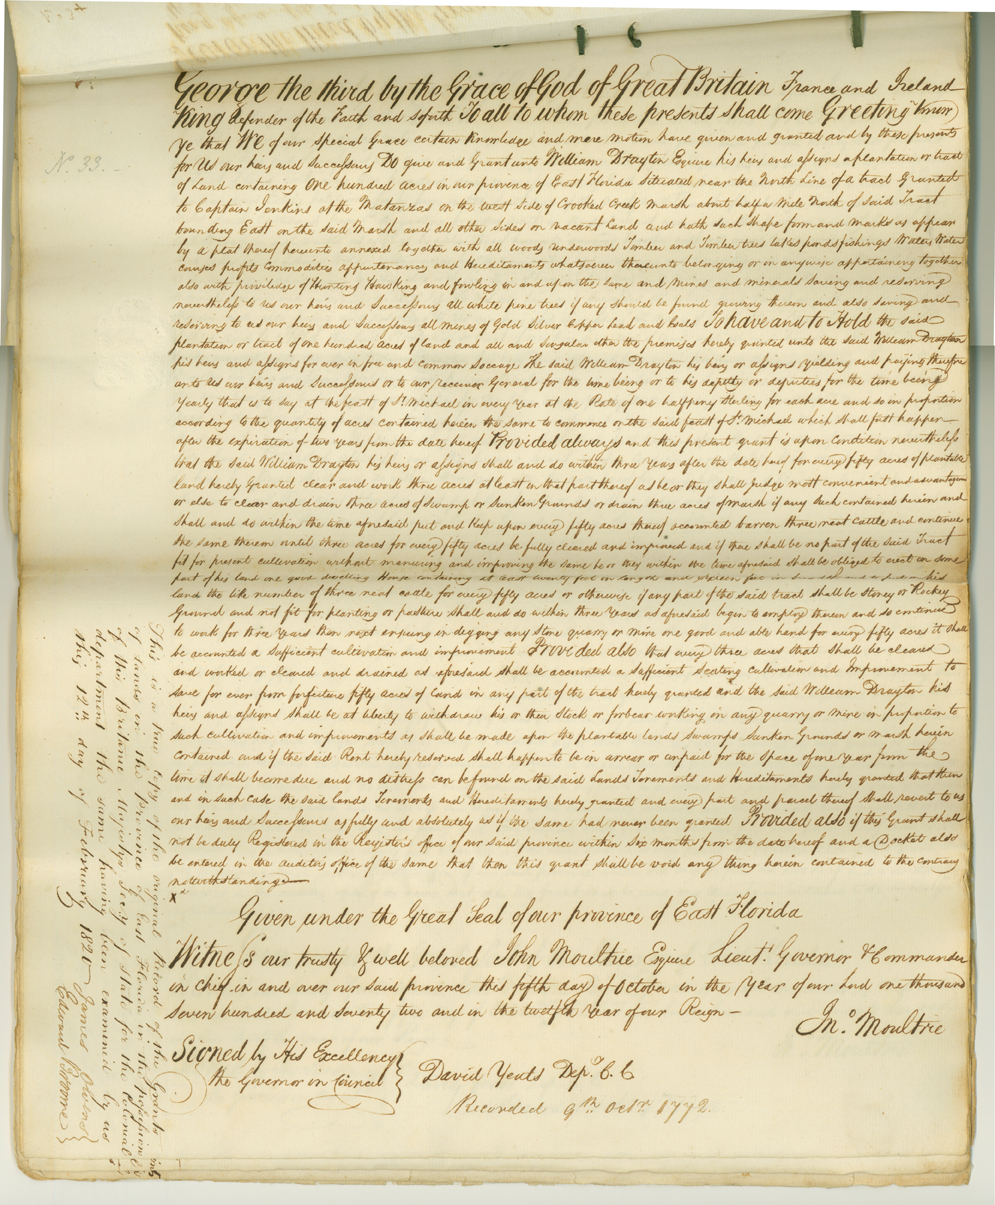 No. 33.
George the third by the Grace of God of Great Britain France and Ireland
King Defender of the Faith and soforth To all to whom these presents shall come Greeting Know
Ye that We of our Special Grace certain Knowledge and mere motion have given and granted and by these presents
for Us our heirs and Successours Do give and Grant unto William Drayton Equire his heirs and assigns a plantation or tract
of Land containing One hundred acres in our province of East Florida Situated near the North Line of a tract Granted
to Captain Jenkins at the Matanzas on the west side of Crooked Creek Marsh about half a Mile North of Said Tract
bounding East on the said Marsh and all other sides on vacant Land and hath such Shape form and marks as appear
by a plat thereof hereunto annexed together with all woods underwoods Timber and Timber trees lakes ponds fishings Waters Water
courses profits Commodities appurtenances and Hereditaments whatsoever thereunto belonging or in anywise appertaining together
also with priviledge of Hunting Hawking and fowling in and upon the same and Mines and minerals Saving and reserving
nevertheless to us our heirs and Successours all white pine trees if any should be found growing therein and also saving and
reserving to us our heirs and Successours all mines of Gold Silver Copper Lead and Coals To have and to Hold the said
plantation or tract of one hundred acres of land and all and Singular other the premises hereby granted unto the said William Drayton
his heirs and assigns for ever in free and Common Soccage The said William Drayton his heirs or assigns yielding and paying therefore
unto Us our heirs and Successours or to our receiver General for the time being or to his deputy or deputies for the time being
Yearly that is to say at the feast of St. Michael in every Year at the Rate of one halfpeny Sterling for each acre and so in proportion
according to the quantity of acres contained herein the same to commence on the said feast of St. Michael which shall first happen
after the expiration of two years from the date hereof Provided always and this present grant is upon Condition nevertheless
that the said William Drayton his heirs or assigns shall and do within three Years after the date hereof for every fifty acres of plantable
land hereby Granted clear and work three acres at least in that part thereof as he or they shall Judge most convenient and advantageous
or else to clear and drain three acres of Swamp or Sunken Grounds or drain three acres of marsh if any such contained herein and
shall and do within the time aforesaid put and Keep upon every fifty acres thereof accounted barren three neat Cattle and continue
the same thereon until three acres for every fifty acres be fully cleared and improved and if there shall be no part of the said Tract
fit for present cultivation without manuring and improving the same he or they within the time aforesaid shall be obliged to erect on some
part of his land one good dwelling House containing at least twenty feet in length and sixteen feet in his
land the like number of three neat cattle for every fifty acres or otherwise if any part of the said tract shall be Stoney or Rockey
Ground and not fit for planting or pasture shall and do within three Years as aforesaid begin to employ thereon and so continue
to work for three Years then next ensuing in digging any Stone quarry or Mine one good and able hand for every fifty acres it shall
be accounted a Sufficient cultivation and improvement Provided also that every three acres that shall be cleared
and worked or cleared and drained as aforesaid shall be accounted a Sufficient Seating cultivation and Improvement to
save for ever from forfeiture fifty acres of Land in any part of the tract hereby granted and the said William Drayton his
heirs and assigns shall be at liberty to withdraw his or their Stock or forbear working in any quarry or mine in proportion to
such cultivation and improvements as shall be made upon the plantable lands Swamps Sunken Grounds or Marsh herein
contained and if the said Rent hereby reserved shall happen to be in arrear or unpaid for the Space of one Year from the
time it shall become due and no distress can be found on the said Lands Tenements and Hereditaments hereby granted that then
and in such case the said Lands Tenements and Hereditaments hereby granted and every part and parcel thereof shall revert to us
our heirs and Successours as fully and absolutely as if the same had never been granted Provided also if this Grant shall
not be duly Registered in the Register's office of our said province within Six months from the date hereof and a Docket also
be entered in the auditor's office of the same that then this grant shall be void any thing herein contained to the contrary
notwithstanding
Given under the Great Seal of our province of East Florida
Witness our trusty & well beloved John Moultrie Equire Lieut. Governor & Commander
in Chief in and over our said province this fifth day of October in the Year of our Lord one thousand
Seven hundred and seventy two and in the twelfth Year of our Reign
Jno. Moultrie
Signed by His Excellency
the Governor in Council
David Yeats Depy. C. C
Recorded 9th Octr. 1772.
This is a true copy of the original Record of the Grants
of Lands in the province of East Florida in the possession
of His Britanic Majestys Secy of State for the Colonial
department the same having been examined by us
this 12th day of February 1821
James
Edward